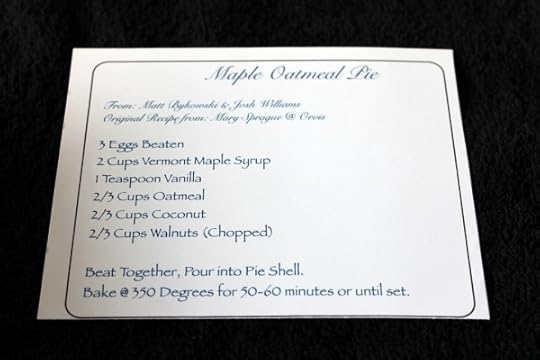 Maple Oatmeal Pie
From: Matt Bykowski & Josh Williams
Original Recipe from: Mary Sprague @ Orois
3 Eggs Beaten
2 Cups Vermont Maple Syrup
1 Teaspoon Vanilla
2/3 Cups Oatmeal
2/3 Cups Coconut
2/3 Cups Walnuts (Chopped)
Beat Together, Pour into Pie Shell.
Bake @ 350 Degrees for 50-60 minutes or until set.